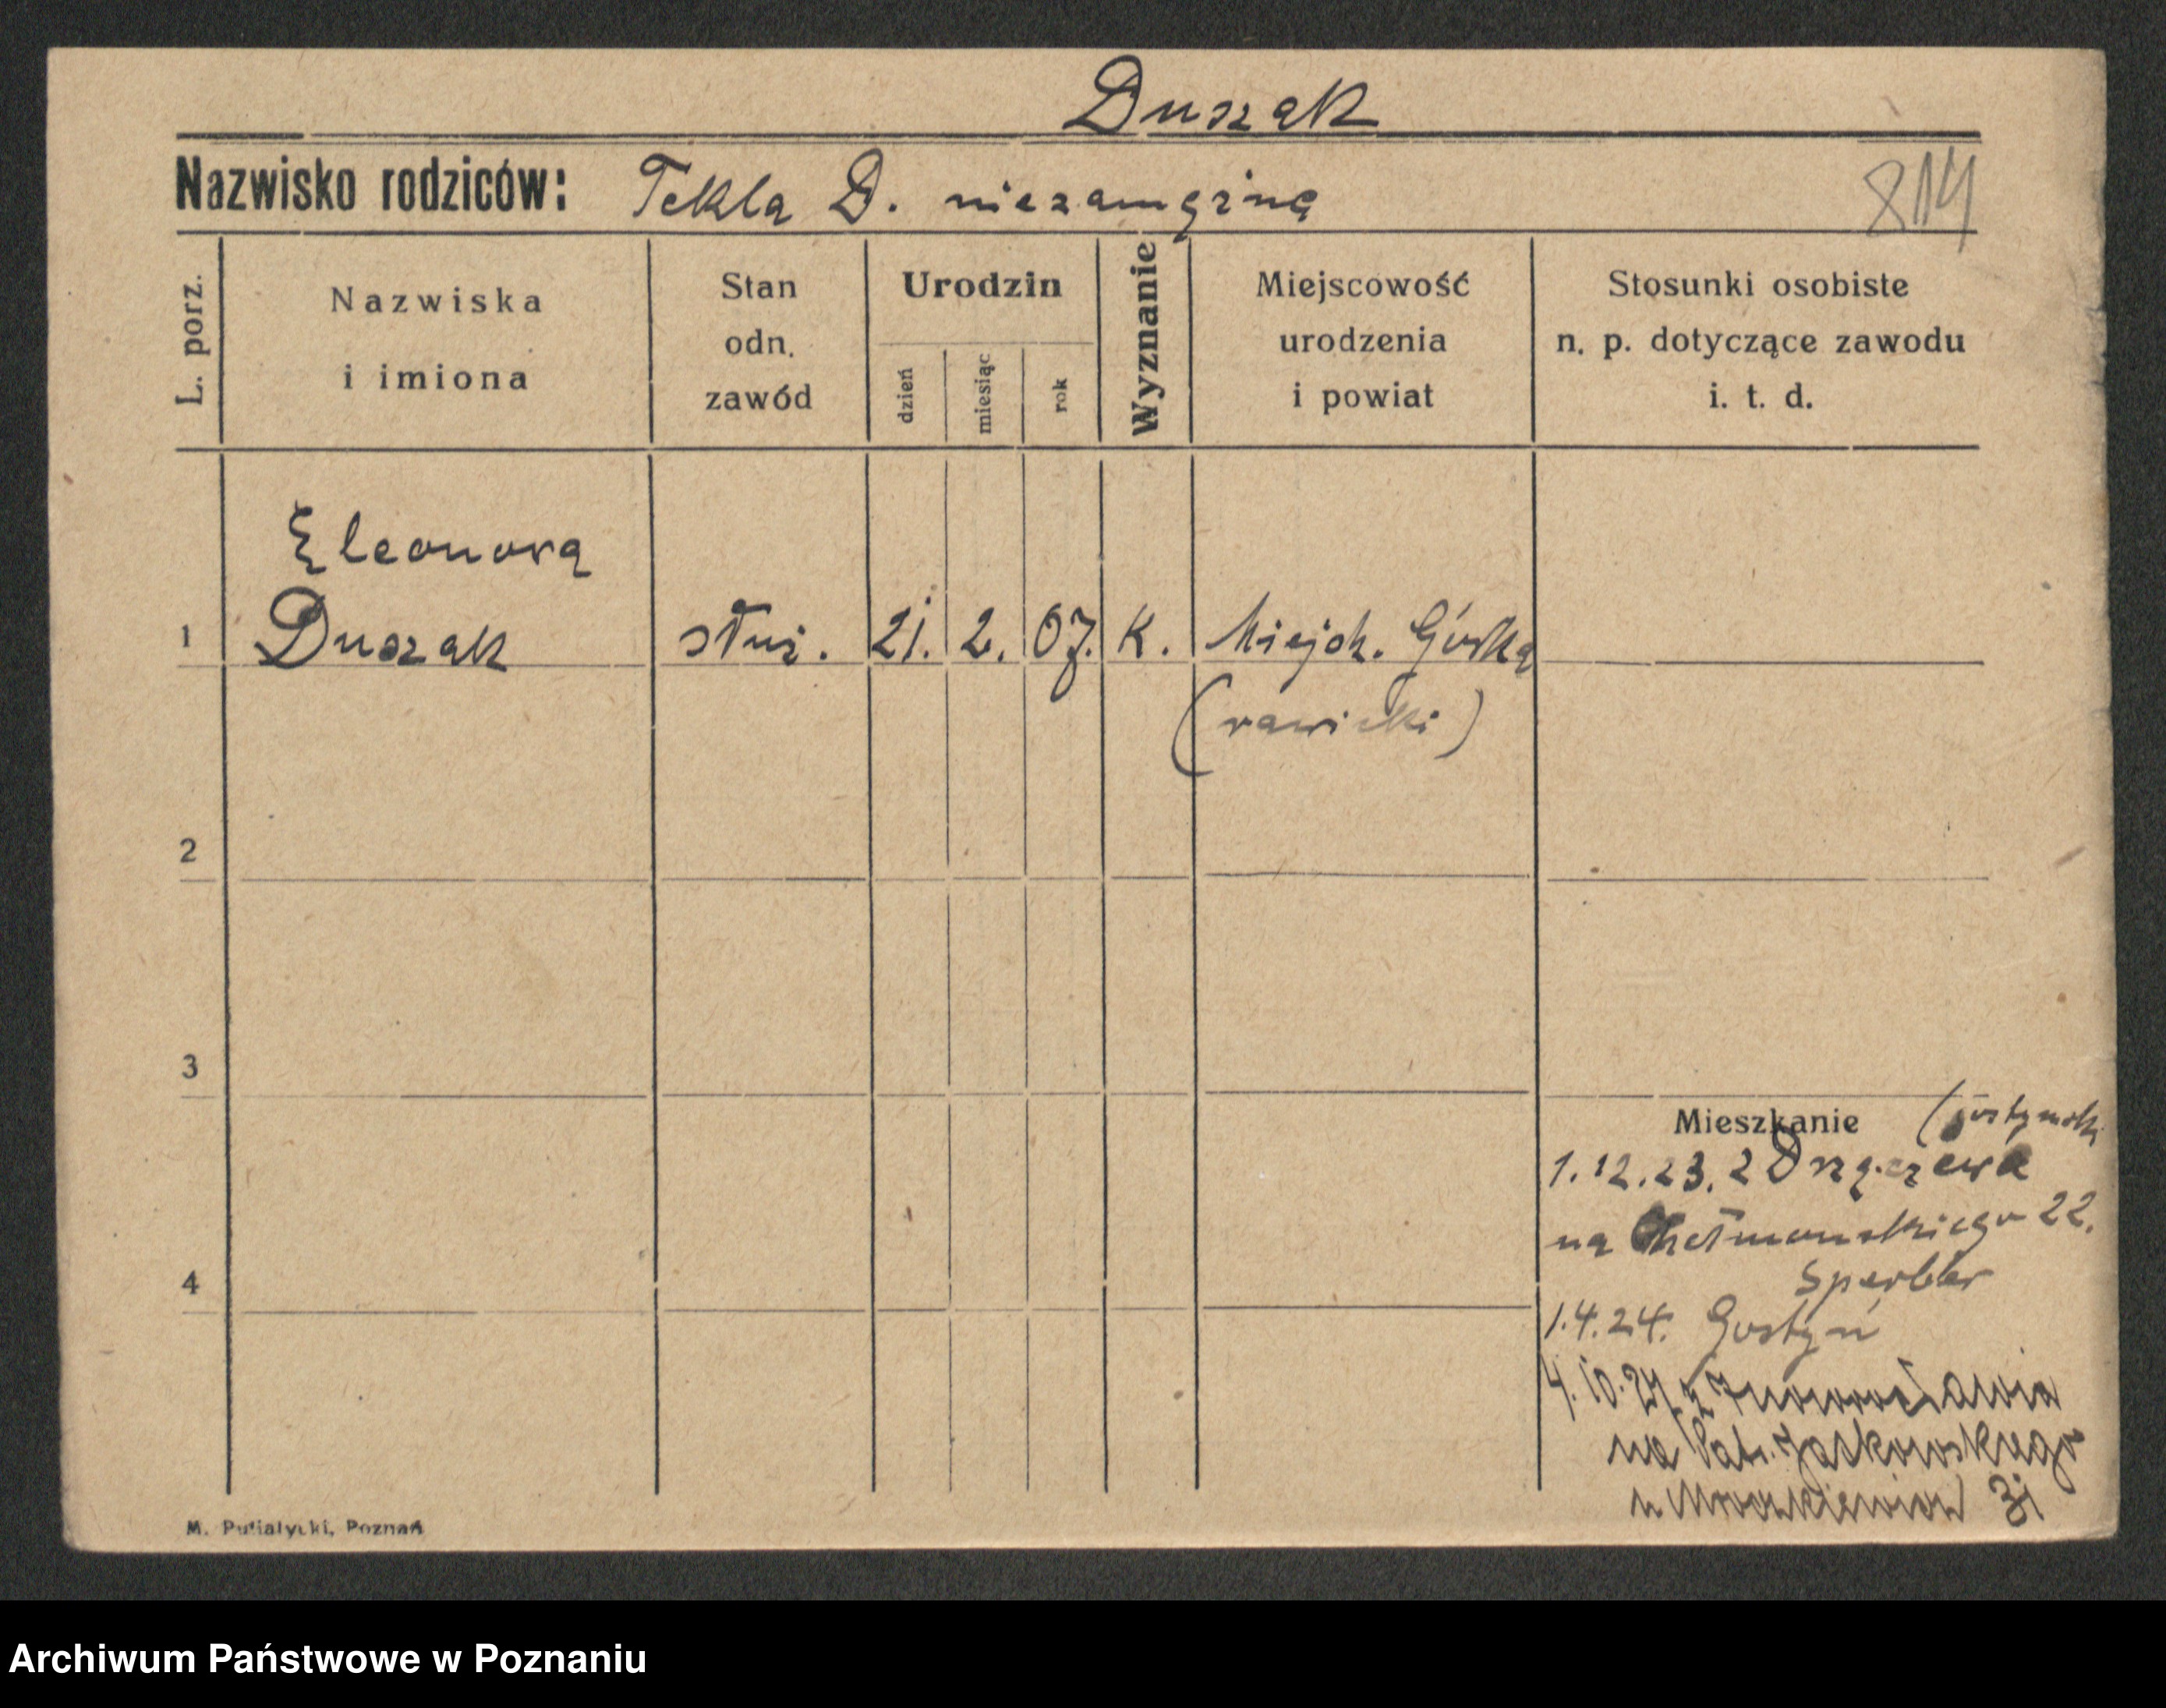 Duszak
Nazwisko rodziców: Tekla D. niezamężna
814
L. porz.
Nazwiska
i imiona
Stan
odn.
zawód
Urodzin
dzień
miesiąc
rok
Wyznanie
Miejscowość
urodzenia
i powiat
Stosunki osobiste
n. p. dotyczące zawodu
i. t. d.
Eleonora
1 Duszak służ. 21. 2. 07. K. Miejsk. Górka
(rawicki)
2
3
Mieszkanie (gostynski
1.12.23. z Drzęczewa
na Chełmonskiego 22.
Sperber
4
1.4.24. Gostyń
4.10.24 z Inowrocławia
na Patr. Jackowskiego
u 31
M. Putiatycki, Poznań
Archiwum Państwowe w Poznaniu